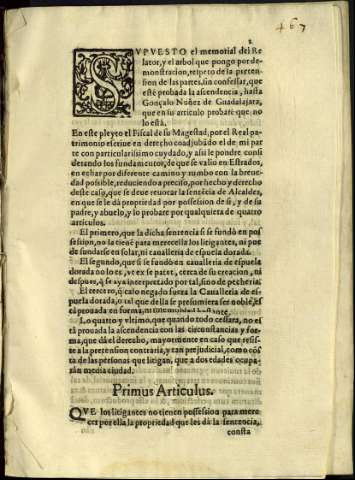 467
SVPVESTO el memorial del Re
lator, y el arbol que pongo por de-
monstracion, respeto de la preten-
sion de las partes, sin confessar, que
esté probada la ascendencia, hasta
Gonçalo Nuñez de Guadalajara,
que en su articulo probarè que no
lo està.
En este pleyto el Fiscal de su Magestad, por el Real pa-
trimonio escriue en derecho coadjubãdo el de mi par
te con particularissimo cuydado, y assi le pondre consi
derando los fundamentos, de que se valio en Estrados,
en echar por diferente camino y rumbo con la breue-
dad posible, reduciendo a preciso, por hecho y derecho
deste caso, que se deue reuocar la sentēcia de Alcaldes,
en que se le dà propiedad por possession de si, y de su
padre, y abuelo, y lo probare por qualquiera de quatro
articulos.
El primero, que la dicha sentencia si se fundò en pos
session, no la tienē para merecella los litigantes, ni pue
de fundarse en solar, ni caualleria de espuela dorada.
El segundo, que si se fundò en caualleria de espuela
dorada no lo es, vt ex se patet, cerca de su creacion, ni
despues, q̃ se aya interpretado por tal, sino de pecheria.
El tercero, q̃ caso negado fuera la Caualleria de es-
puela dorada, o tal que della se presumiera ser noble, es
tà prouada en forma,
Lo quarto y vltimo, que quando todo cessara, no es-
tà prouada la ascendencia con las circunstancias y for-
ma, que dà el derecho, mayormente en caso que resis-
te a la pretension contraria, y tan prejudicial, como cõs
ta de las personas que litigan, que a dos tales ocupa-
rán media ciudad.
Primus Articulus.
QVE los litigantes no tienen possession para mere-
cer por ella la propriedad que les dà la sentencia,
consta